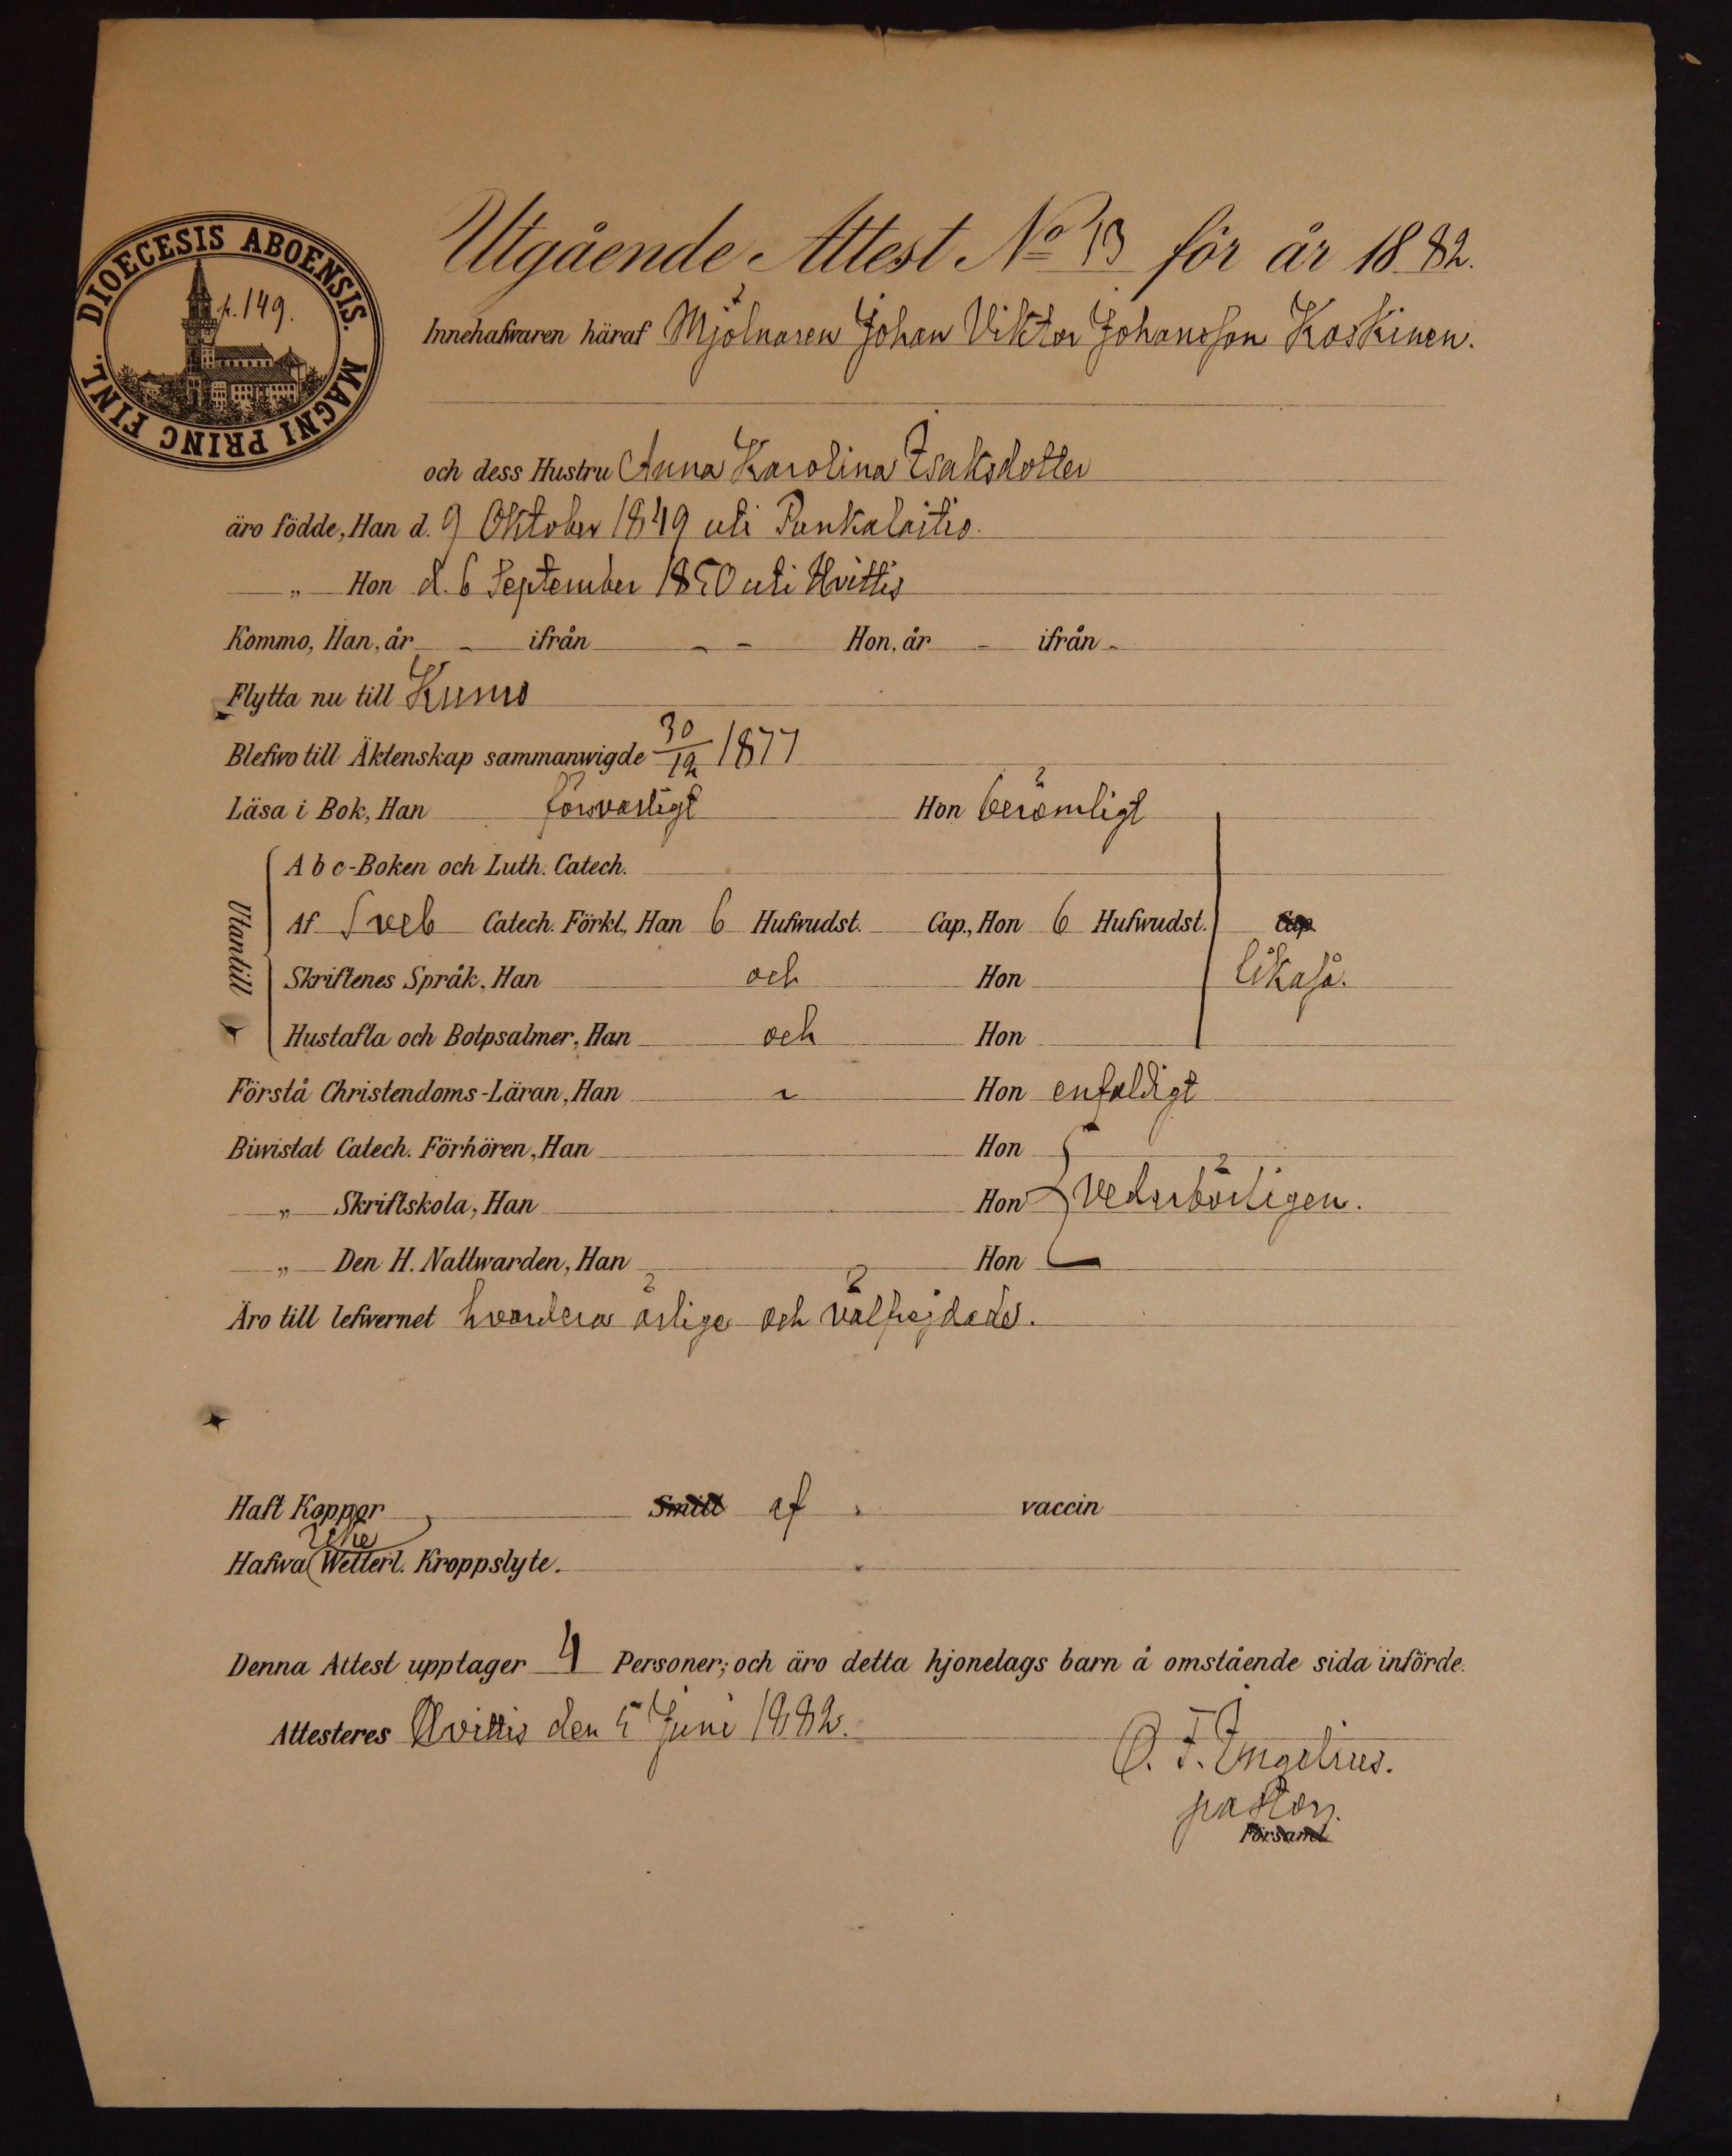 DIOECESIS ABOENSIS. MAGNI PRINC FINL.
p. 149.
Utgående Attest No 13 för år 1882.
Innehafwaren häraf Mjölnaren Johan Viktor Johansson Koskinen.
och dess Hustru Anna Karolina Isaksdotter
äro födde, Han d. 9 Oktober 1849 uti Punkalaitio.
„ Hon d. 6 September 1850 uti Hvittis
Kommo, Han, år - ifrån - - Hon, år - ifrån -
Flytta nu till Kumo
Blefwo till Äktenskap sammanwigde 30/12 1877
Läsa i Bok, Han försvarligt Hon berömligt
Utantill
A b c-Boken och Luth. Catech.
Af Sveb Catech. Förkl., Han 6 Hufwudst. Cap., Hon 6 Hufwudst. Cap
Skriftenes Språk, Han och Hon likaså.
Hustafla och Botpsalmer, Han och Hon
Förstå Christendoms-Läran, Han Hon enfaldigt
Biwistat Catech. Förhören, Han Hon
„ Skriftskola, Han Hon vederbörligen.
„ Den H. Nattwarden, Han Hon
Äro till lefwernet hvardera ärlige och välfrejdade.
Haft Koppor Smitt af vaccin
icke
Hafwa Wetterl. Kroppslyte.
Denna Attest upptager 4 Personer; och äro detta hjonelags barn å omstående sida införde.
Attesteres Hvittis den 5 Juni 1882.
O. F. Ingelius.
pastor.
Församl